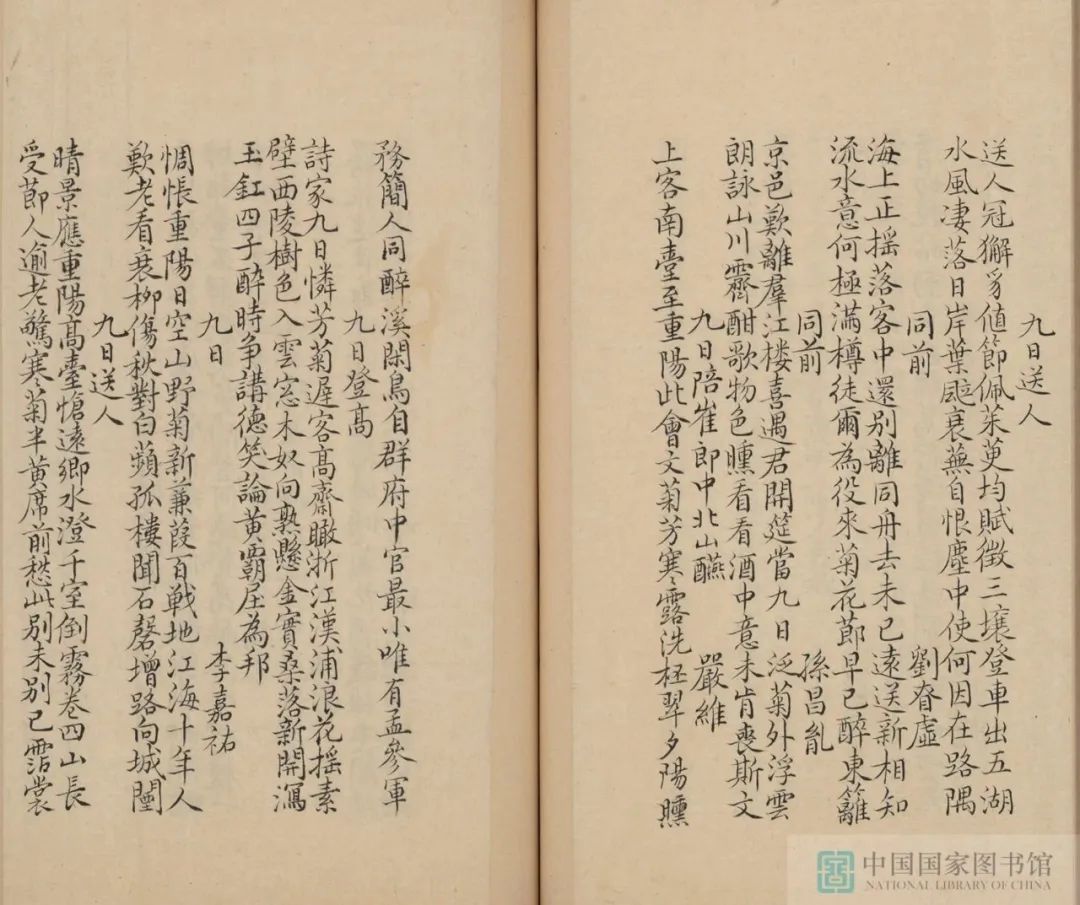 九日送人
送人冠獬豸值節佩茱萸均賦徵三壤登車出五湖
水風凄落日岸葉颭衰蕪自恨塵中使何因在路隅
同前 劉眘虛
海上正摇落客中還别離同舟去未已遠送新相知
流水意何極滿樽徒爾為役來菊花莭早已醉東籬
同前 孫昌亂
京邑歎離羣江楼喜遇君開筵當九日泛菊外浮雲
朗詠山川霽酣歌物色曛看看酒中意未肯喪斯文
九日陪崔郎中北山醼 嚴維
上客南臺至重陽此會文菊芳寒露洗杯翠夕陽曛
務簡人同醉溪閑鳥自群府中官最小唯有孟參軍
九日登高
詩家九日憐芳菊遲客髙齋瞰浙江漢浦浪花摇素
壁西陵樹色入雲窓木奴向熟懸金實桑落新開瀉
玉缸四子醉時争講德笑論黃霸屈為邦
九日 李嘉祐
惆悵重陽日空山野菊新蒹葭百戦地江海十年人
歎老看衰柳傷秋對白蘋孤樓聞石磬塔路向城闉
九日送人
晴景應重陽髙臺愴遠鄉水澄千室倒霧卷四山長
受莭人逾老驚寒菊半黃席前愁此别未别已霑裳
中国国家图书馆
NATIONAL LIBRARY OF CHINA